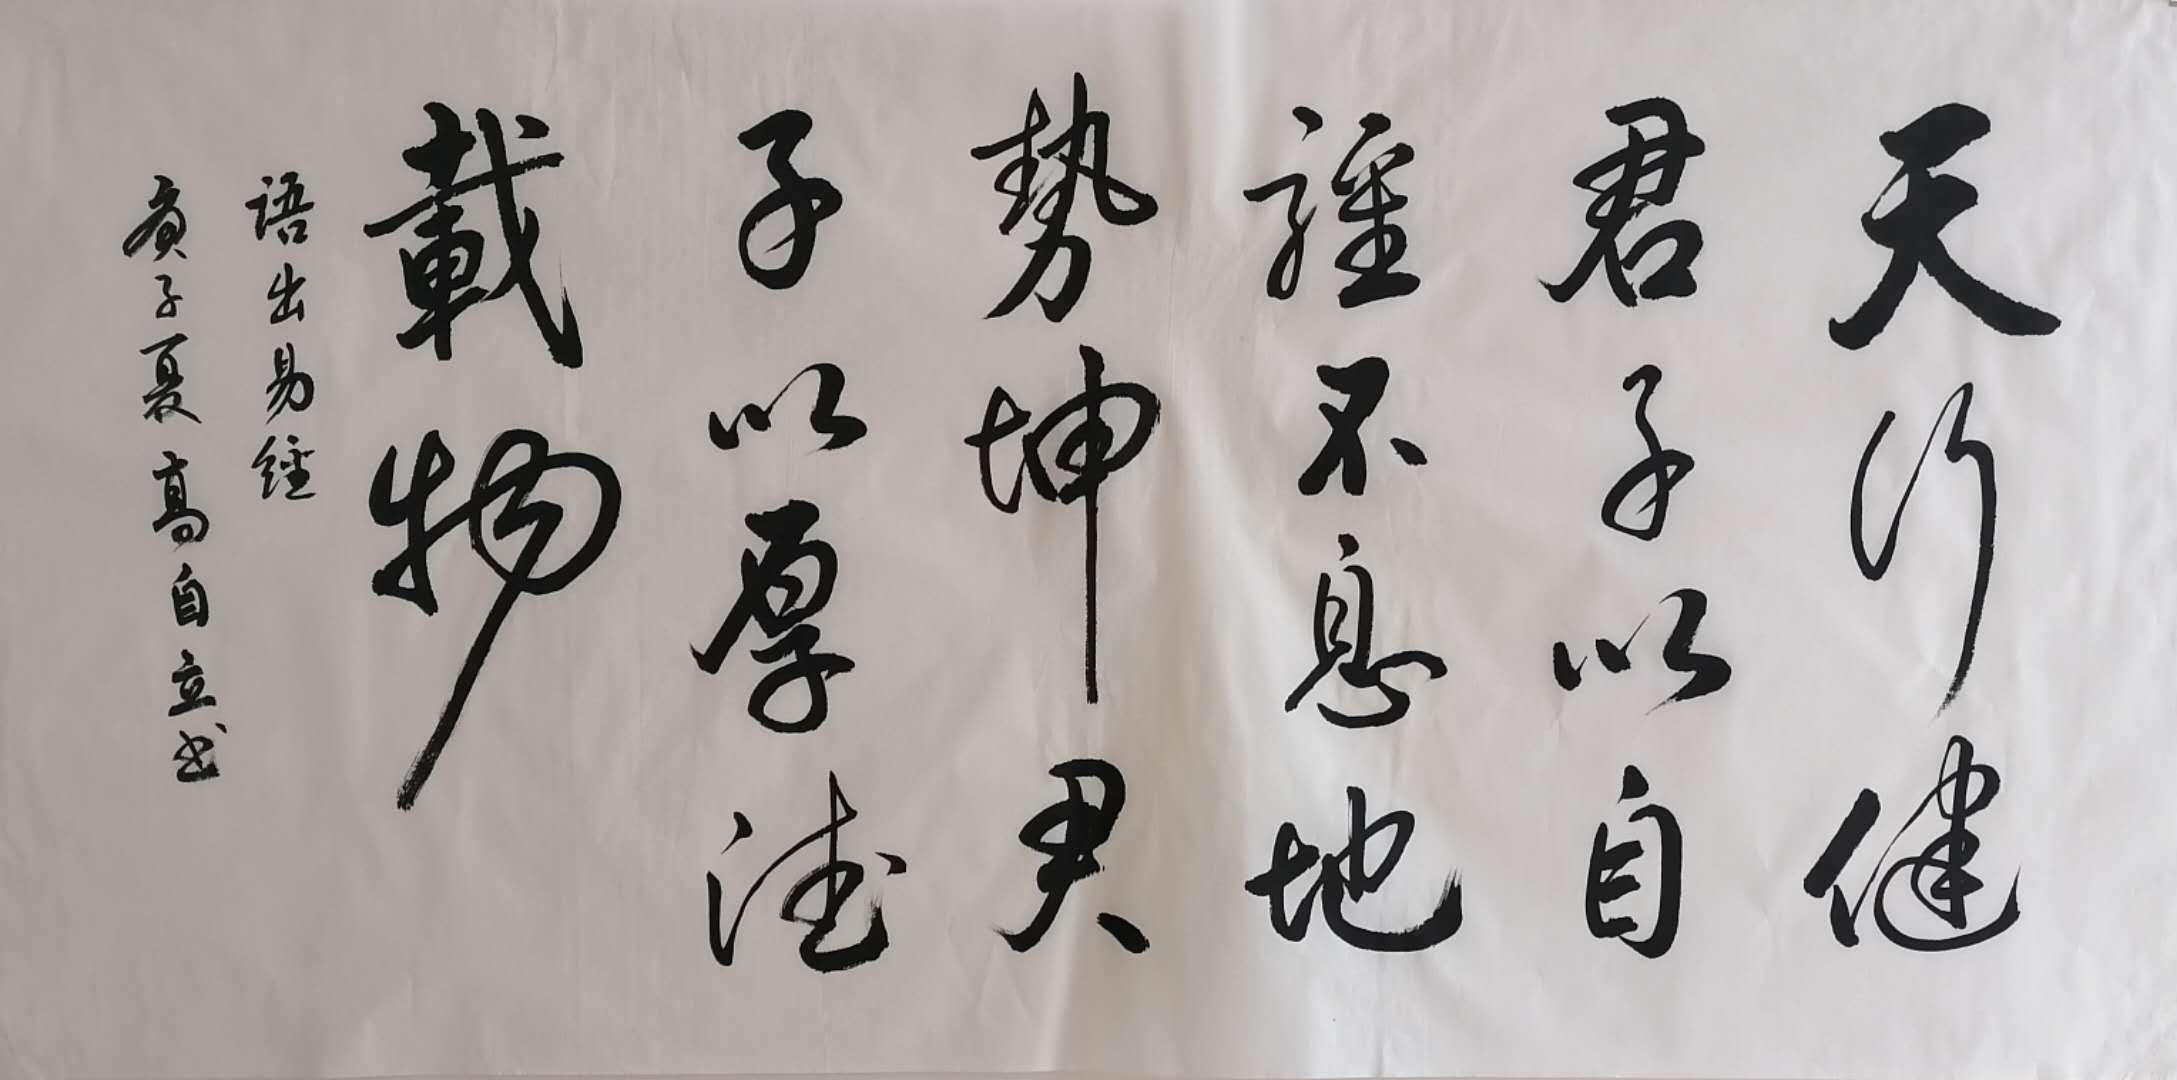 天行健
君子以自
強不息地
勢坤君
子以厚德
載物
語出易經
庚子夏高自立书